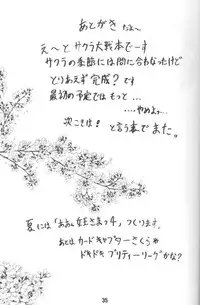 あとがき だよ〜
え〜と サクラ大戦本で〜す
サクラの季節には間に合わなったけど
とりあえず完成？です
最初の予定ではもっと…
……やめよっ
次こそは！ と言う事でまた。
夏には「ああっ女王さまっ4」つくります。
あとはカードキャプターさくらや
ドキドキプリティーリーグかな？
35